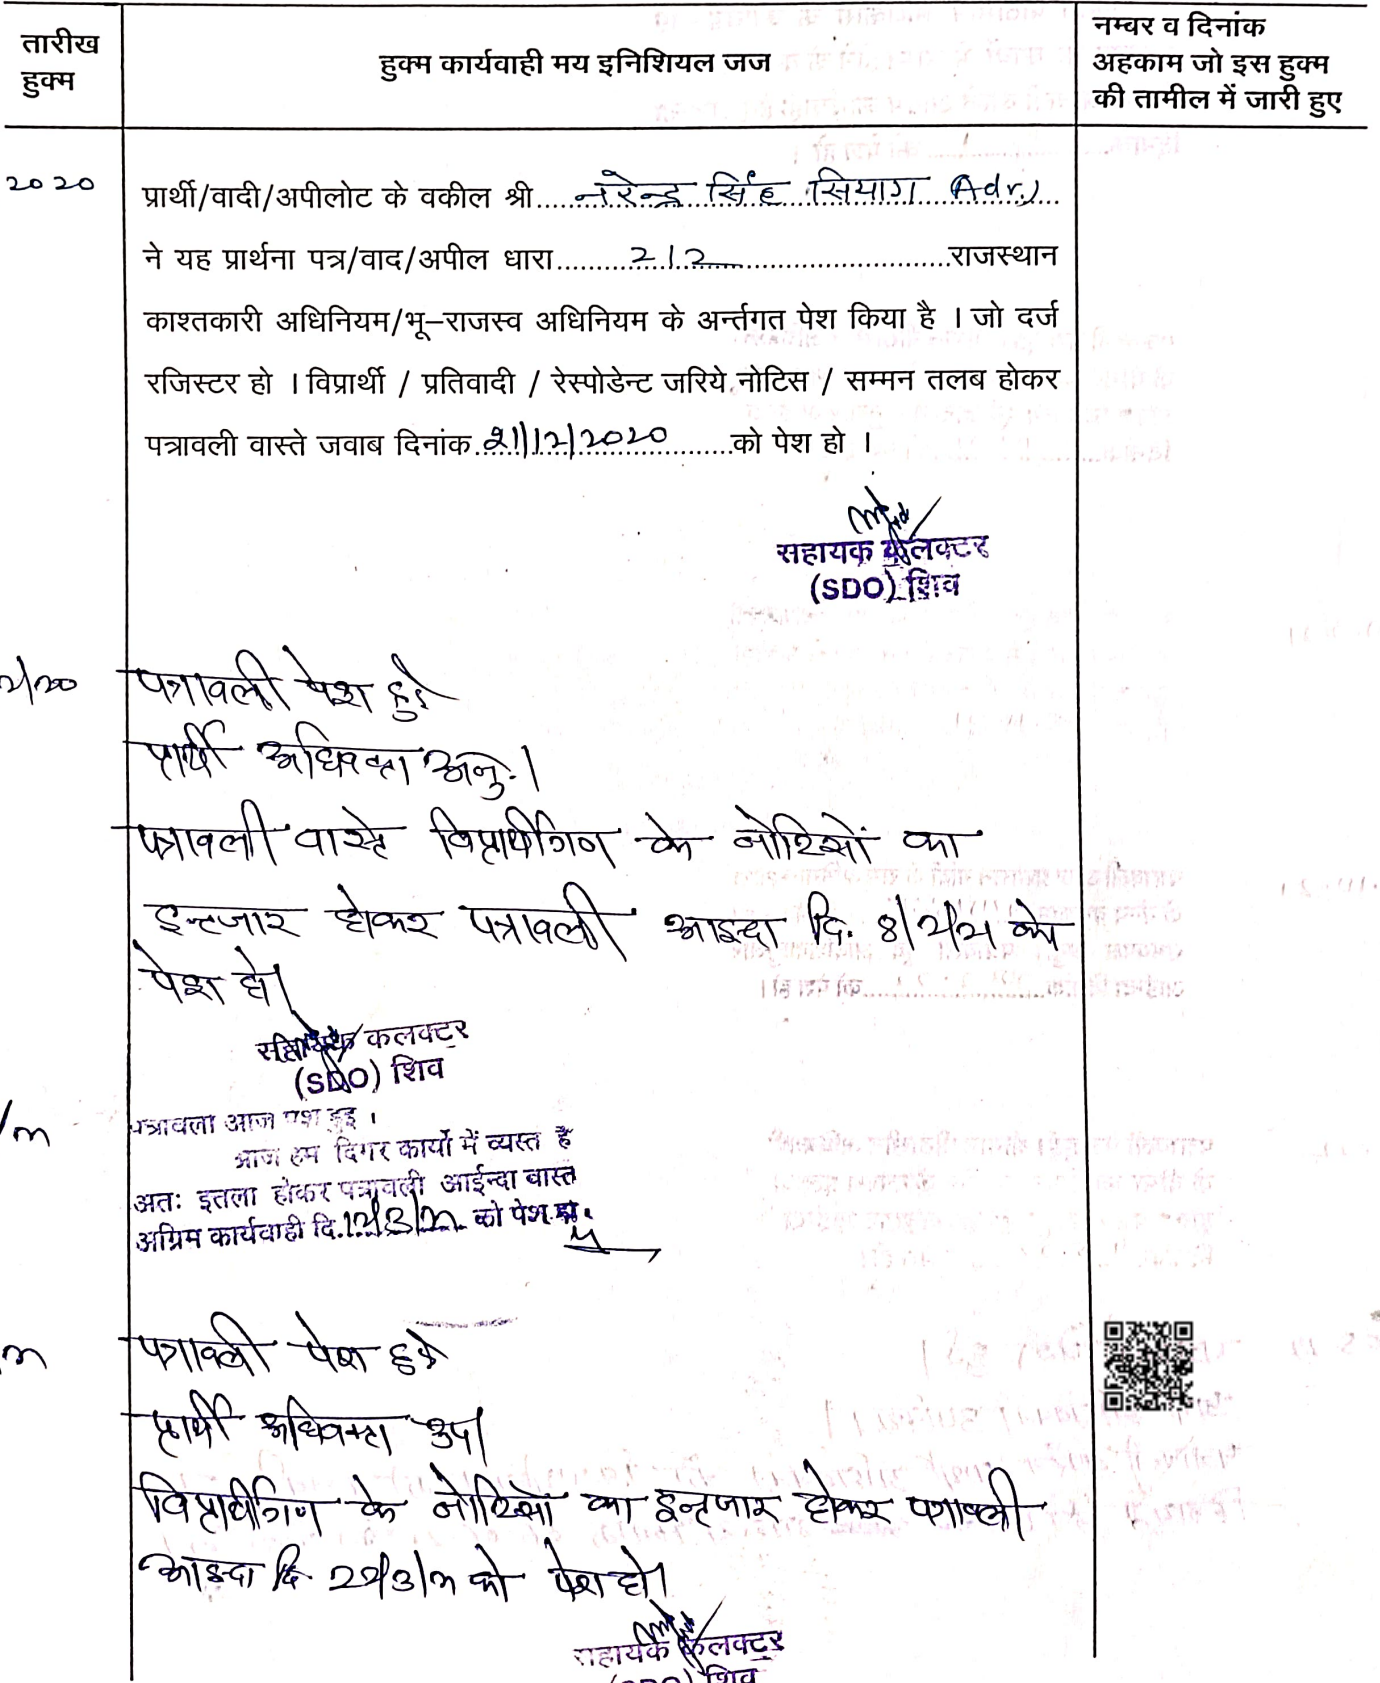 तारीख
हुक्म
हुक्म कार्यवाही मय इनिशियल जज
नम्बर व दिनांक
अहकाम जो इस हुक्म
की तामील में जारी हुए
2020
प्रार्थी/वादी/अपीलोट के वकील श्री.....नरेन्द्र सिंह सियाग (Adv.)
ने यह प्रार्थना पत्र/वाद/अपील धारा.......212.......राजस्थान
काश्तकारी अधिनियम/भू–राजस्व अधिनियम के अर्न्तगत पेश किया है । जो दर्ज
रजिस्टर हो । विप्रार्थी / प्रतिवादी / रेस्पोडेन्ट जरिये नोटिस / सम्मन तलब होकर
पत्रावली वास्ते जवाब दिनांक.21/12/2020.......को पेश हो ।
सहायक कलक्टर
(SDO) शिव
पत्रावली पेश हुई
प्रार्थी अधिवक्ता अनु.।
पत्रावली वास्ते विप्रार्थीगण के नोटिसों का
इन्तजार होकर पत्रावली आइन्दा दि. 8/2/21 को
पेश हो।
सहायक कलक्टर
(SDO) शिव
पत्रावली आज पेश हुई ।
आज हम दिगर कार्यो में व्यस्त है
अतः इतला होकर पत्रावली आईन्दा वास्ते
अग्रिम कार्यवाही दि.12/3/21 को पेश हो.
पत्रावली पेश हुई
प्रार्थी अधिवक्ता उप।
विप्रार्थीगण के नोटिसों का इन्तजार होकर पत्रावली
आइन्दा दि. 22/3/21 को पेश हो।
सहायक कलक्टर
(SDO) शिव